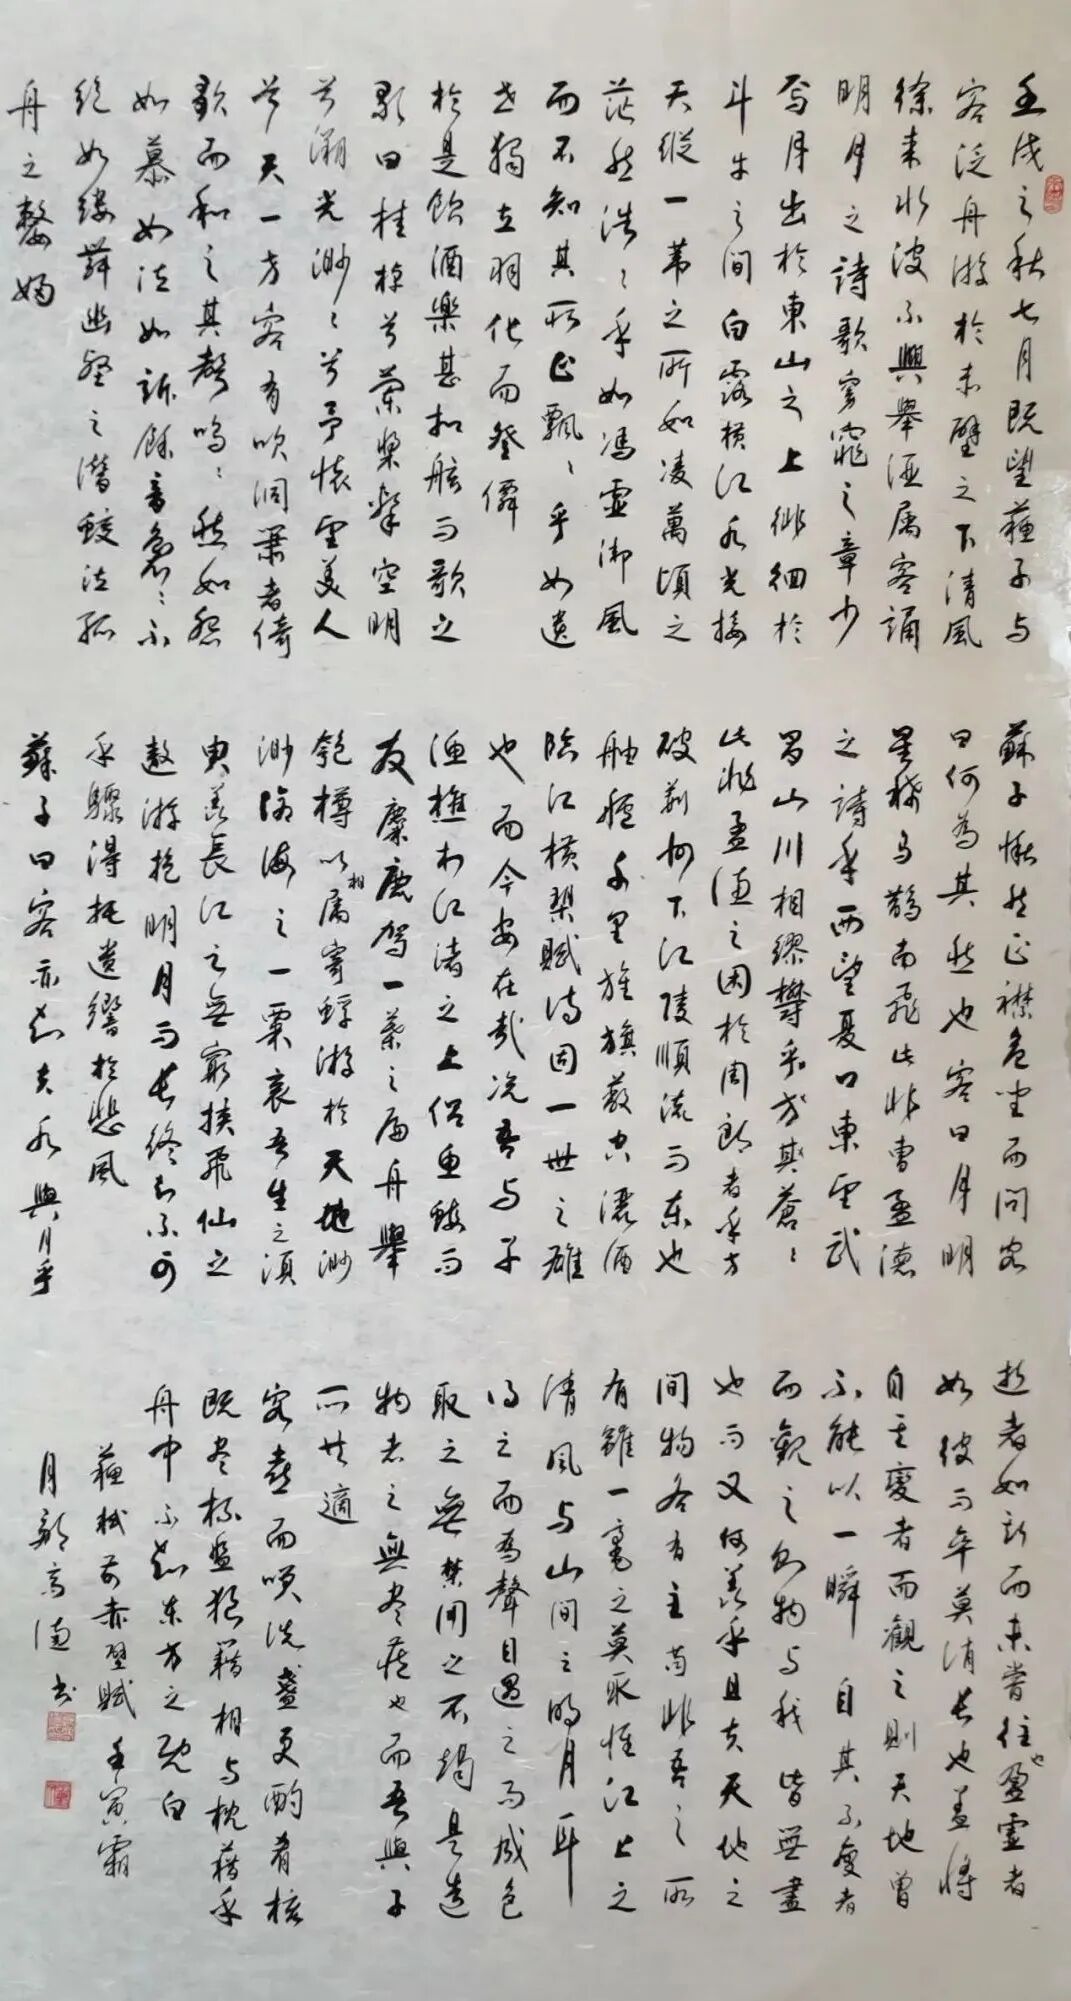 壬戌之秋七月既望蘇子与
客泛舟游於赤壁之下清風
徐来水波不興舉酒属客誦
明月之詩歌窈窕之章少
焉月出於東山之上徘徊於
斗牛之間白露横江水光接
天縱一葦之所如凌萬頃之
茫然浩浩乎如馮虚御風
而不知其所止飄飄乎如遗
世獨立羽化而登僊
於是飲酒樂甚扣舷而歌之
歌曰桂棹兮蘭槳擊空明
兮溯光渺渺兮予懷望美人
兮天一方客有吹洞簫者倚
歌而和之其聲嗚嗚然如怨
如慕如泣如訴餘音裊裊不
絕如縷舞幽壑之潛蛟泣孤
舟之嫠婦
蘇子愀然正襟危坐而問客
曰何為其然也客曰月明
星稀乌鵲南飛此非曹孟德
之詩乎西望夏口東望武
昌山川相繆鬱乎蒼蒼
此非孟德之困於周郎者乎方
破荆州下江陵順流而東也
舳艫千里旌旗蔽空灑酒
臨江横槊賦诗固一世之雄
也而今安在哉况吾与子
渔樵於江渚之上侣魚蝦而
友麋鹿驾一葉之扁舟舉
匏樽以相属寄蜉游於天地渺
渺滄海之一粟哀吾生之須
臾羨長江之無窮挟飛仙之
遨游抱明月而长终知不可
乎驟得托遗響於悲風
蘇子曰客亦知夫水與月乎
逝者如斯而未嘗往也盈虚者
如彼而卒莫消长也盖将
自其變者而觀之則天地曾
不能以一瞬自其不變者
而觀之则物与我皆無盡
也而又何羡乎且夫天地之
間物各有主苟非吾之所
有雖一毫之莫取惟江上之
清風与山間之明月耳
得之而為聲目遇之而成色
取之無禁用之不竭是造
物者之無尽藏也而吾與子
所共適
客喜而笑洗盞更酌肴核
既尽杯盘狼藉相与枕藉乎
舟中不知东方之既白
蘇軾前赤壁賦壬寅霜
月
书